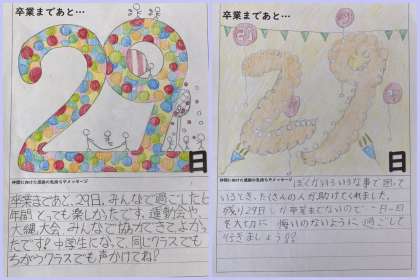 卒業まであと…
29
日
仲間に向けた感謝の気持ちやメッセージ
卒業まであと、29日。みんなで過ごした七
年間とっても楽しかったです。運動会や、
大縄大会 みんなで協力できてよかっ
たです!中学生になって、同じクラスでも
ちがうクラスでも声かけてね!
卒業まであと…
29
日
仲間に向けた感謝の気持ちやメッセージ
ぼくがいろいろな事で困って
いるとき、たくさんの人が助けてくれました。
残り29日しか卒業までないので一日一日
を大切に 悔いのないように過ごして
行きましょう!!